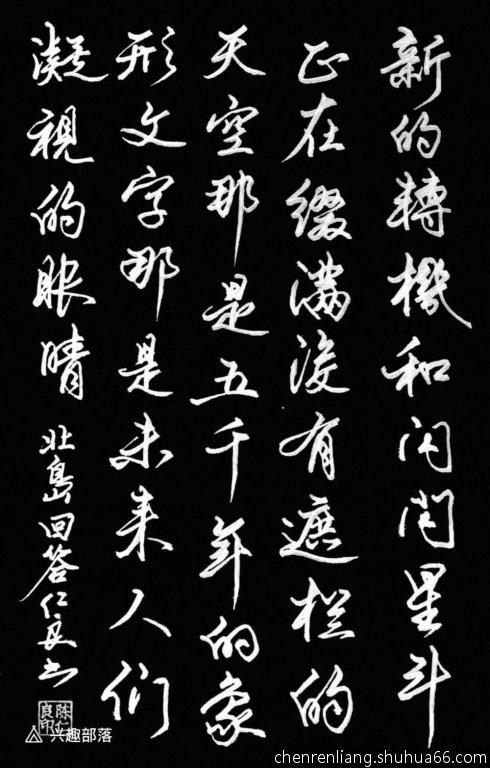 新的轉機和闪闪星斗
正在綴滿没有遮栏的
天空那是五千年的象
形文字那是未来人们
凝視的眼睛
北島回答仁良书
兴趣部落
chenrenliang.shuhua66.com